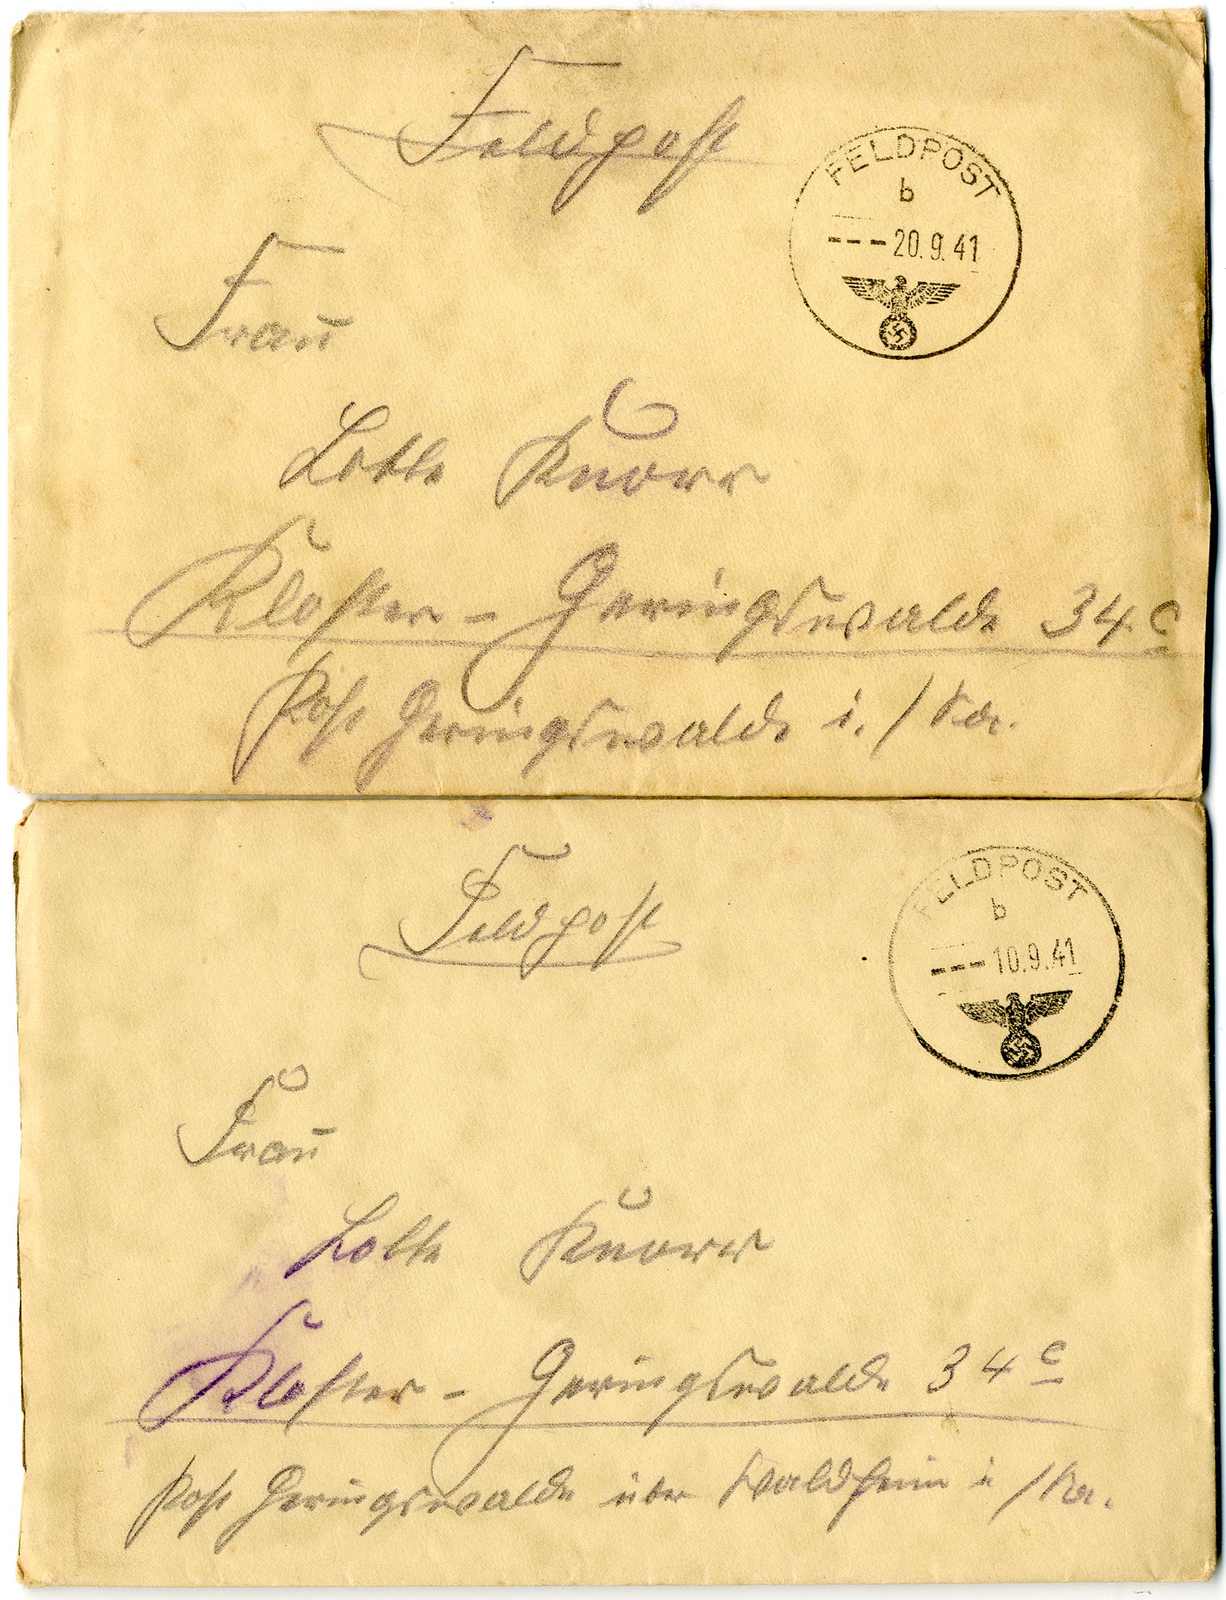 Feldpost
FELDPOST
b
--- 20.9.41
Frau
Lotte Knorr
Kloster-Geringswalde 34c
Post Geringswalde i./Sa.
Feldpost
FELDPOST
b
--- 10.9.41
Frau
Lotte Knorr
Kloster-Geringswalde 34c
Post Geringswalde über Waldheim i/Sa.